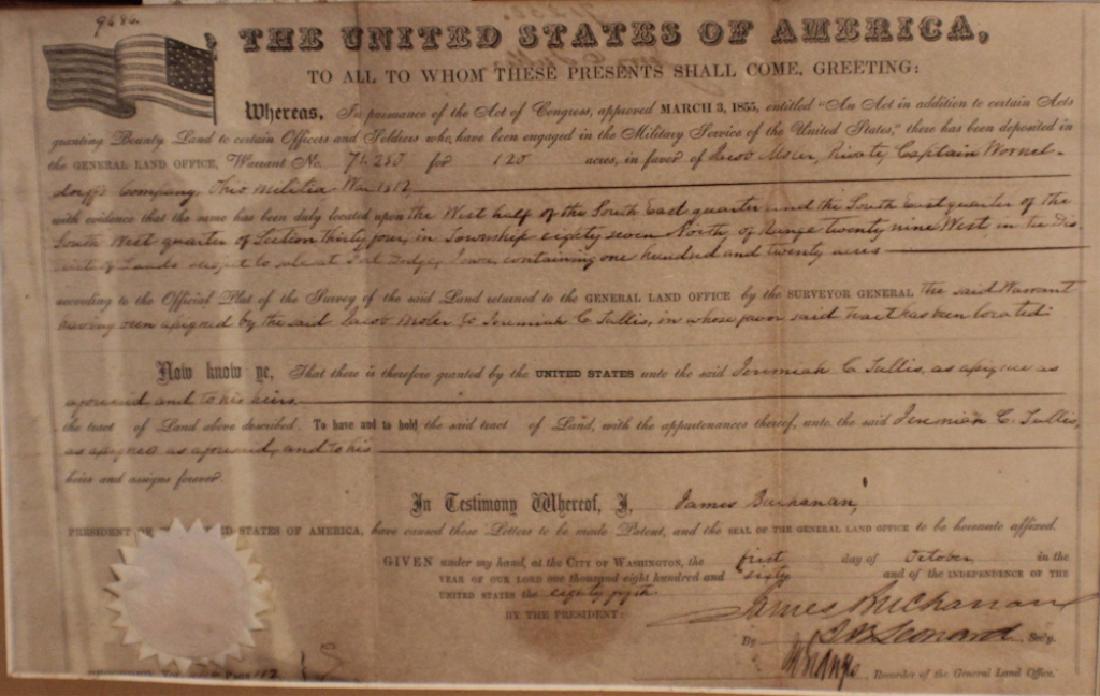 9486.
THE UNITED STATES OF AMERICA,
TO ALL TO WHOM THESE PRESENTS SHALL COME, GREETING:
Whereas, In pursuance of the Act of Congress, approved MARCH 3, 1855, entitled "An Act in addition to certain Acts
granting Bounty Land to certain Officers and Soldiers who have been engaged in the Military Service of the United States," there has been deposited in
the GENERAL LAND OFFICE, Warrant No. for 120 acres, in favor of Jacob Moler, Private, Captain
Company, Ohio Militia War 1812,
with evidence that the same has been duly located upon the West half of the South East quarter and the South East quarter of the
South West quarter of Section thirty four, in Township eighty seven North of Range twenty nine West, in the Dis-
trict of Lands subject to sale at Fort Dodge, Iowa, containing one hundred and twenty acres
according to the Official Plat of the Survey of the said Land returned to the GENERAL LAND OFFICE by the SURVEYOR GENERAL the said Warrant
having been assigned by the said Jacob Moler to Jeremiah C. Tullis, in whose favor said tract has been located.
Now know ye, That there is therefore granted by the UNITED STATES unto the said Jeremiah C. Tullis, as assignee as
aforesaid and to his heirs
the tract of Land above described. To have and to hold the said tract of Land, with the appurtenances thereof, unto the said Jeremiah C. Tullis,
as assignee as aforesaid, and to his
heirs and assigns forever.
In Testimony Whereof, I, James Buchanan,
PRESIDENT OF THE UNITED STATES OF AMERICA, have caused these Letters to be made Patent, and the SEAL OF THE GENERAL LAND OFFICE to be hereunto affixed.
GIVEN under my hand, at the CITY OF WASHINGTON, the first day of October in the
YEAR OF OUR LORD one thousand eight hundred and sixty and of the INDEPENDENCE OF THE
UNITED STATES the eighty fifth.
BY THE PRESIDENT: James Buchanan
By Leonard Sec'y.
Recorder of the General Land Office.